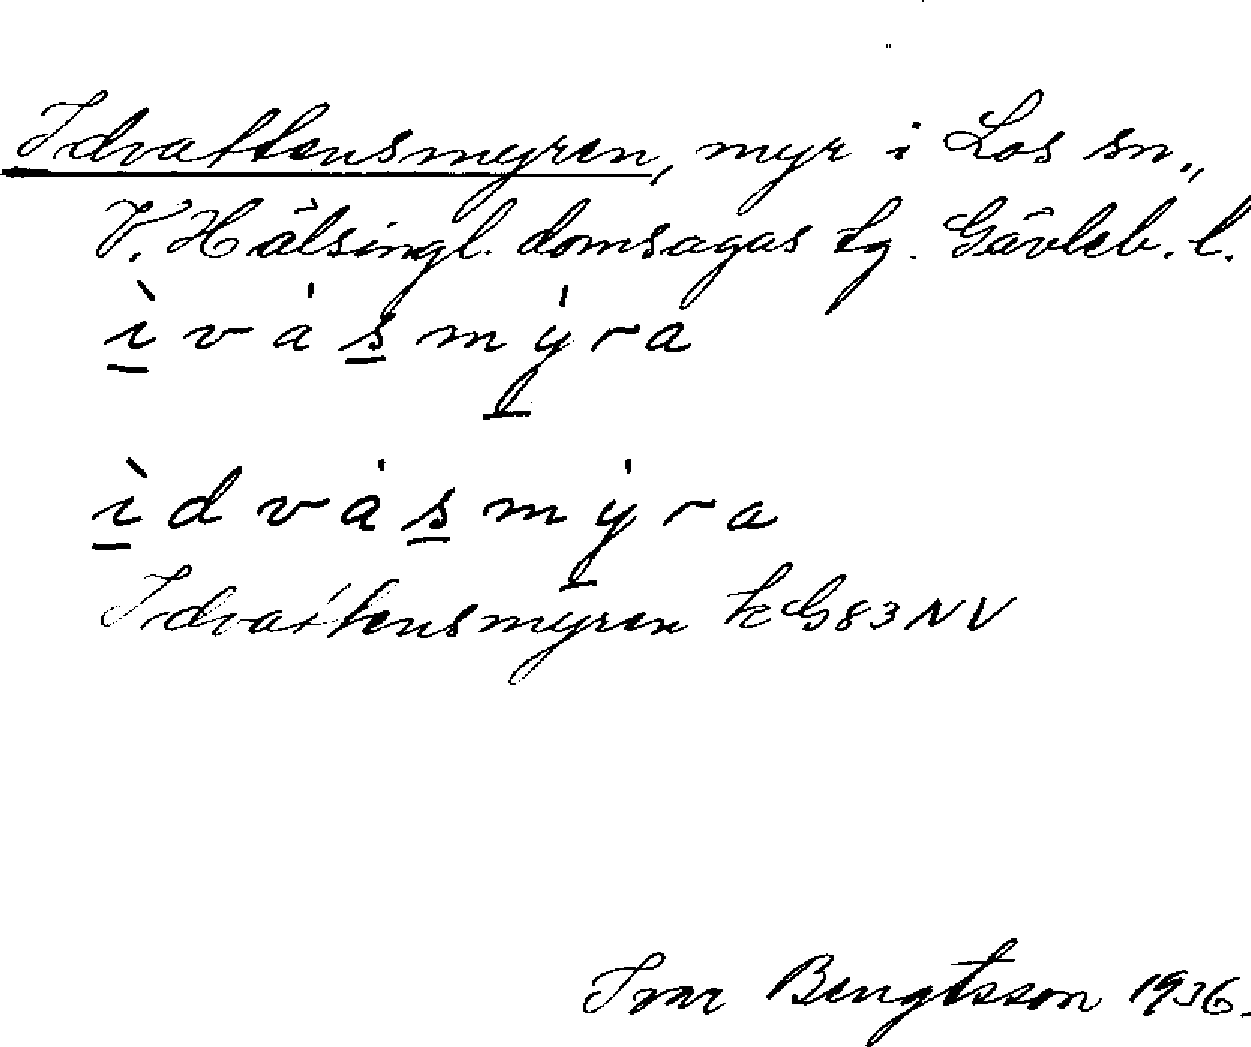 Idvattensmyren, myr i Los sn.,
V. Hälsingl. domsagas tg. Gävleb. l.
ì v á s m ý r a
ì d v á s m ý r a
Idvattensmyren k G83NV
Ivar Bengtsson 1936.